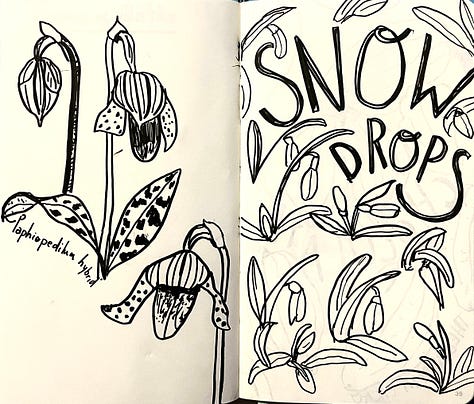 Paphiopedilum hybrid
SNOW
DROPS
39